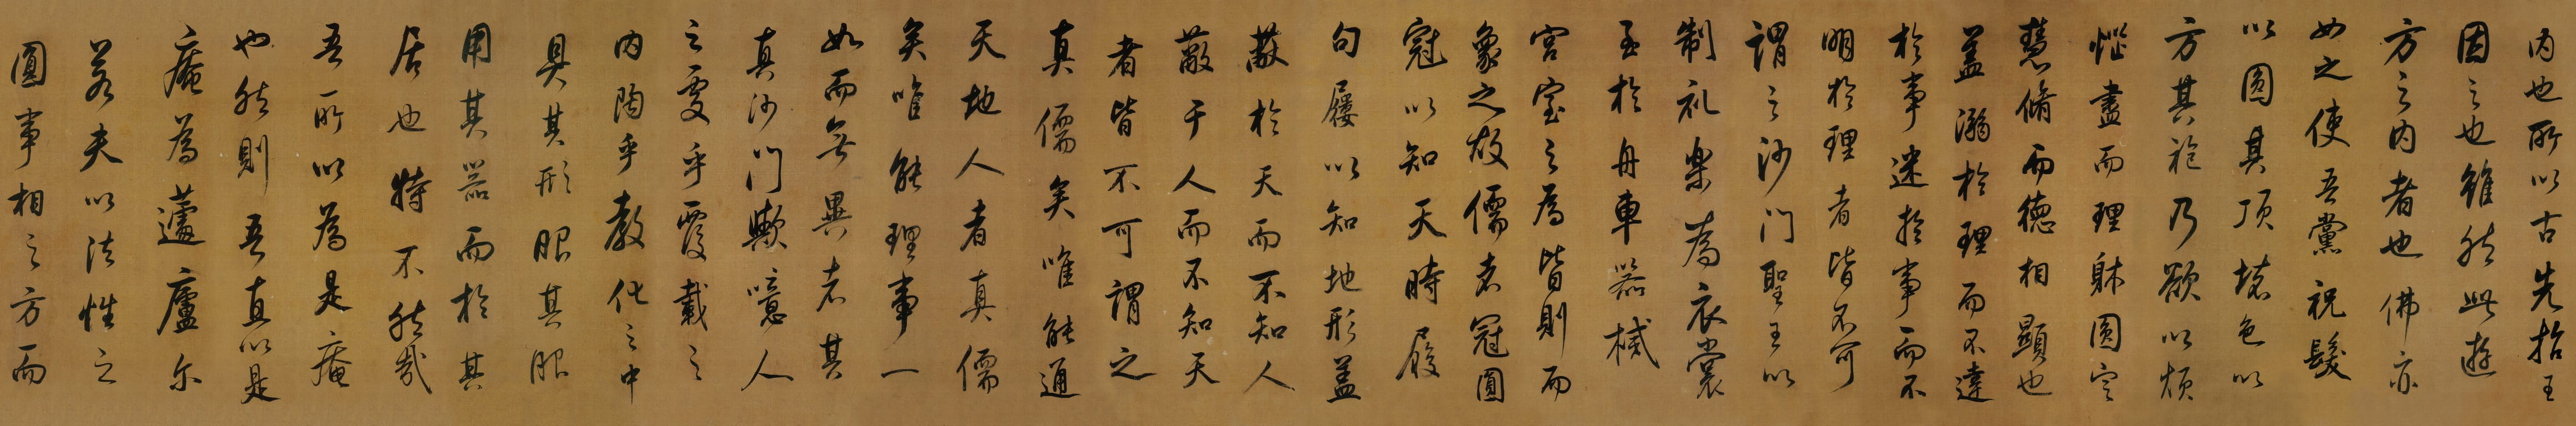 内也所以古先哲王
因之也雖然此遊
方之内者也佛亦
如之使吾黨祝髮
以圓其頂壞色以
方其袍乃欲以煩
惱盡而理躰圓定
慧脩而德相顯也
蓋溺於理而不達
於事迷於事而不
明於理者皆不可
謂之沙門聖王以
制礼樂為衣裳
至於舟車器械
宮室之為皆則而
象之故儒者冠圓
冠以知天時履
句屨以知地形蓋
蔽於天而不知人
蔽于人而不知天
者皆不可謂之
真儒矣唯能通
天地人者真儒
矣唯能理事一
如而無異者其
真沙門歟噫人
之處乎覆載之
内陶乎教化之中
具其形服其服
用其器而於其
居也特不然哉
吾所以為是菴
也然則吾直以是
菴為蘧廬尔
若夫以法性之
圓事相之方而